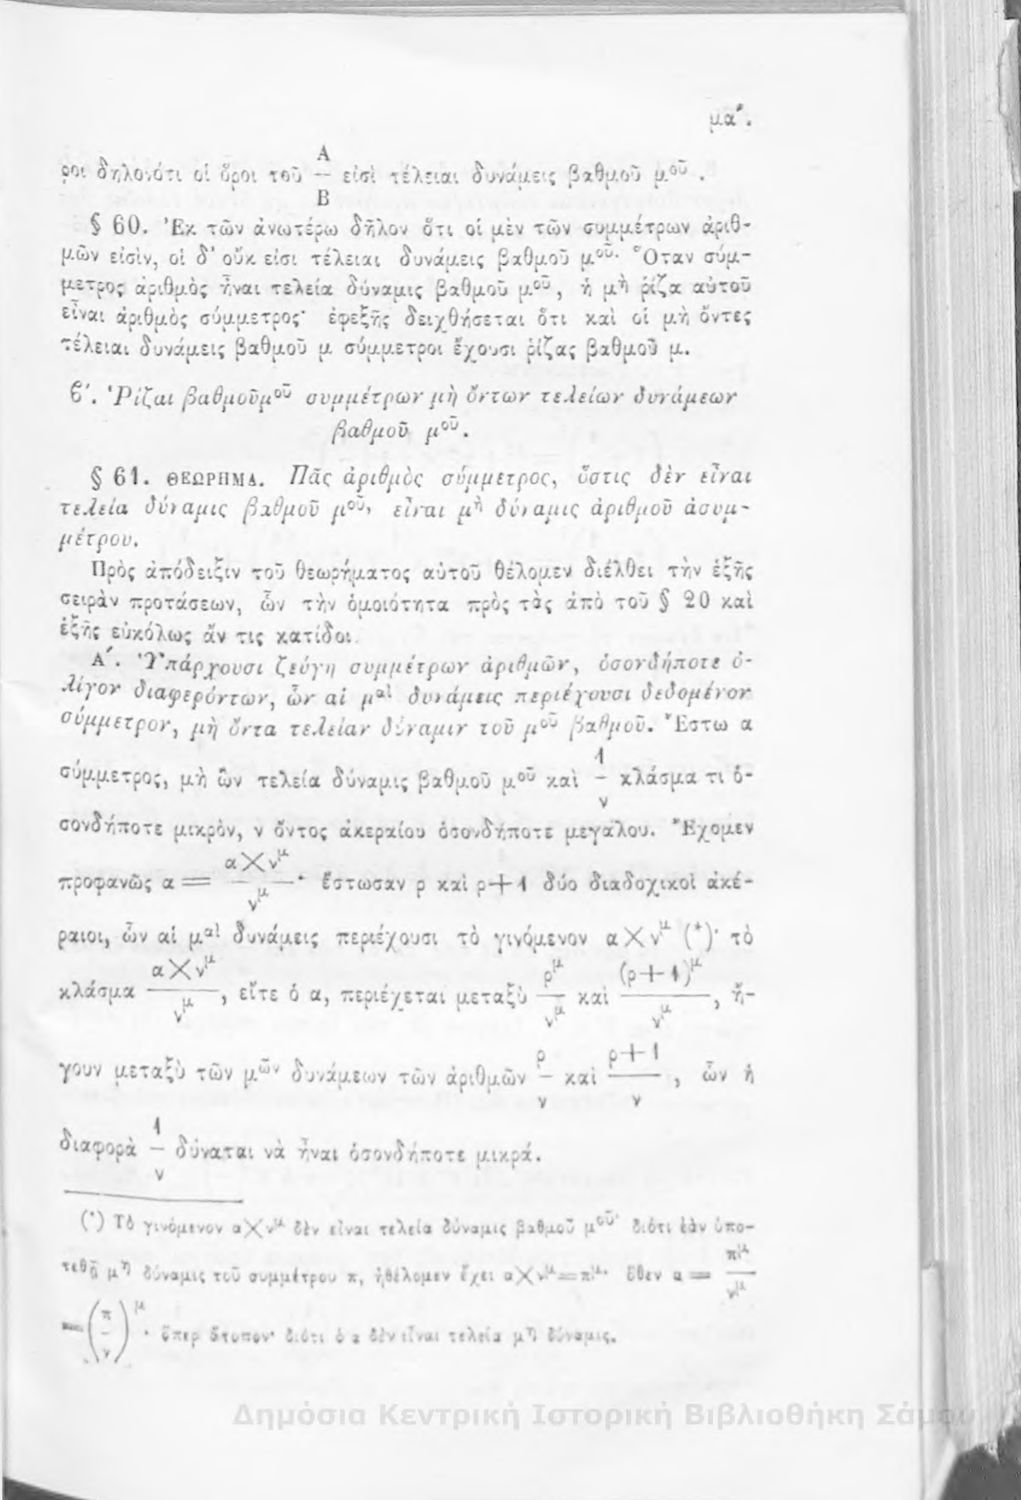 μα'.
ροι δηλονότι οἱ ὅροι τοῦ Α/Β εἰσὶ τέλειαι δυνάμεις βαθμοῦ μοῦ.
§ 60. Ἐκ τῶν ἀνωτέρω δῆλον ὅτι οἱ μὲν τῶν συμμέτρων ἀριθ-
μῶν εἰσὶν, οἱ δ' οὔκ εἰσι τέλειαι δυνάμεις βαθμοῦ μοῦ· Ὅταν σύμ-
μετρος ἀριθμὸς ἦναι τελεία δύναμις βαθμοῦ μοῦ, ἡ μὴ ῥίζα αὐτοῦ
εἶναι ἀριθμὸς σύμμετρος· ἐφεξῆς δειχθήσεται ὅτι καὶ οἱ μὴ ὄντες
τέλειαι δυνάμεις βαθμοῦ μ σύμμετροι ἔχουσι ῥίζας βαθμοῦ μ.
ϐ'. Ῥίζαι βαθμοῦμοῦ συμμέτρων μὴ ὄντων τελείων δυνάμεων
βαθμοῦ μοῦ.
§ 61. ΘΕΩΡΗΜΑ. Πᾶς ἀριθμὸς σύμμετρος, ὅστις δὲν εἶναι
τελεία δύναμις βαθμοῦ μοῦ, εἶναι μὴ δύναμις ἀριθμοῦ ἀσυμ-
μέτρου.
Πρὸς ἀπόδειξιν τοῦ θεωρήματος αὐτοῦ θέλομεν διέλθει τὴν ἑξῆς
σειρὰν προτάσεων, ὧν τὴν ὁμοιότητα πρὸς τὰς ἀπὸ τοῦ § 20 καὶ
ἑξῆς εὐκόλως ἄν τις κατίδοι.
Α'. Ὑπάρχουσι ζεύγη συμμέτρων ἀριθμῶν, ὁσονδήποτε ὀ-
λίγον διαφερόντων, ὧν αἱ μαὶ δυνάμεις περιέχουσι δεδομένον
σύμμετρον, μὴ ὄντα τελείαν δύναμιν τοῦ μοῦ βαθμοῦ. Ἔστω α
σύμμετρος, μὴ ὢν τελεία δύναμις βαθμοῦ μοῦ καὶ 1/ν κλάσμα τι ὁ-
σονδήποτε μικρὸν, ν ὄντος ἀκεραίου ὁσονδήποτε μεγάλου. Ἔχομεν
προφανῶς α = α×ν^μ/ν^μ· ἔστωσαν ρ καὶ ρ+1 δύο διαδοχικοὶ ἀκέ-
ραιοι, ὧν αἱ μαὶ δυνάμεις περιέχουσι τὸ γινόμενον α×ν^μ (*)· τὸ
κλάσμα α×ν^μ/ν^μ, εἴτε ὁ α, περιέχεται μεταξὺ ρ^μ/ν^μ καὶ (ρ+1)^μ/ν^μ, ἤ-
γουν μεταξὺ τῶν μῶν δυνάμεων τῶν ἀριθμῶν ρ/ν καὶ ρ+1/ν, ὧν ἡ
διαφορὰ 1/ν δύναται νὰ ἦναι ὁσονδήποτε μικρά.
(*) Τὸ γινόμενον α×ν^μ δὲν εἶναι τελεία δύναμις βαθμοῦ μοῦ· διότι ἐὰν ὑπο-
τεθῇ μὴ δύναμις τοῦ συμμέτρου π, ἠθέλομεν ἔχει α×ν^μ=π^μ· ὅθεν α = π^μ/ν^μ
=(π/ν)^μ· ὅπερ ἄτοπον· διότι ὁ α δὲν εἶναι τελεία μὴ δύναμις.
Δημόσια Κεντρική Ιστορική Βιβλιοθήκη Σάμου